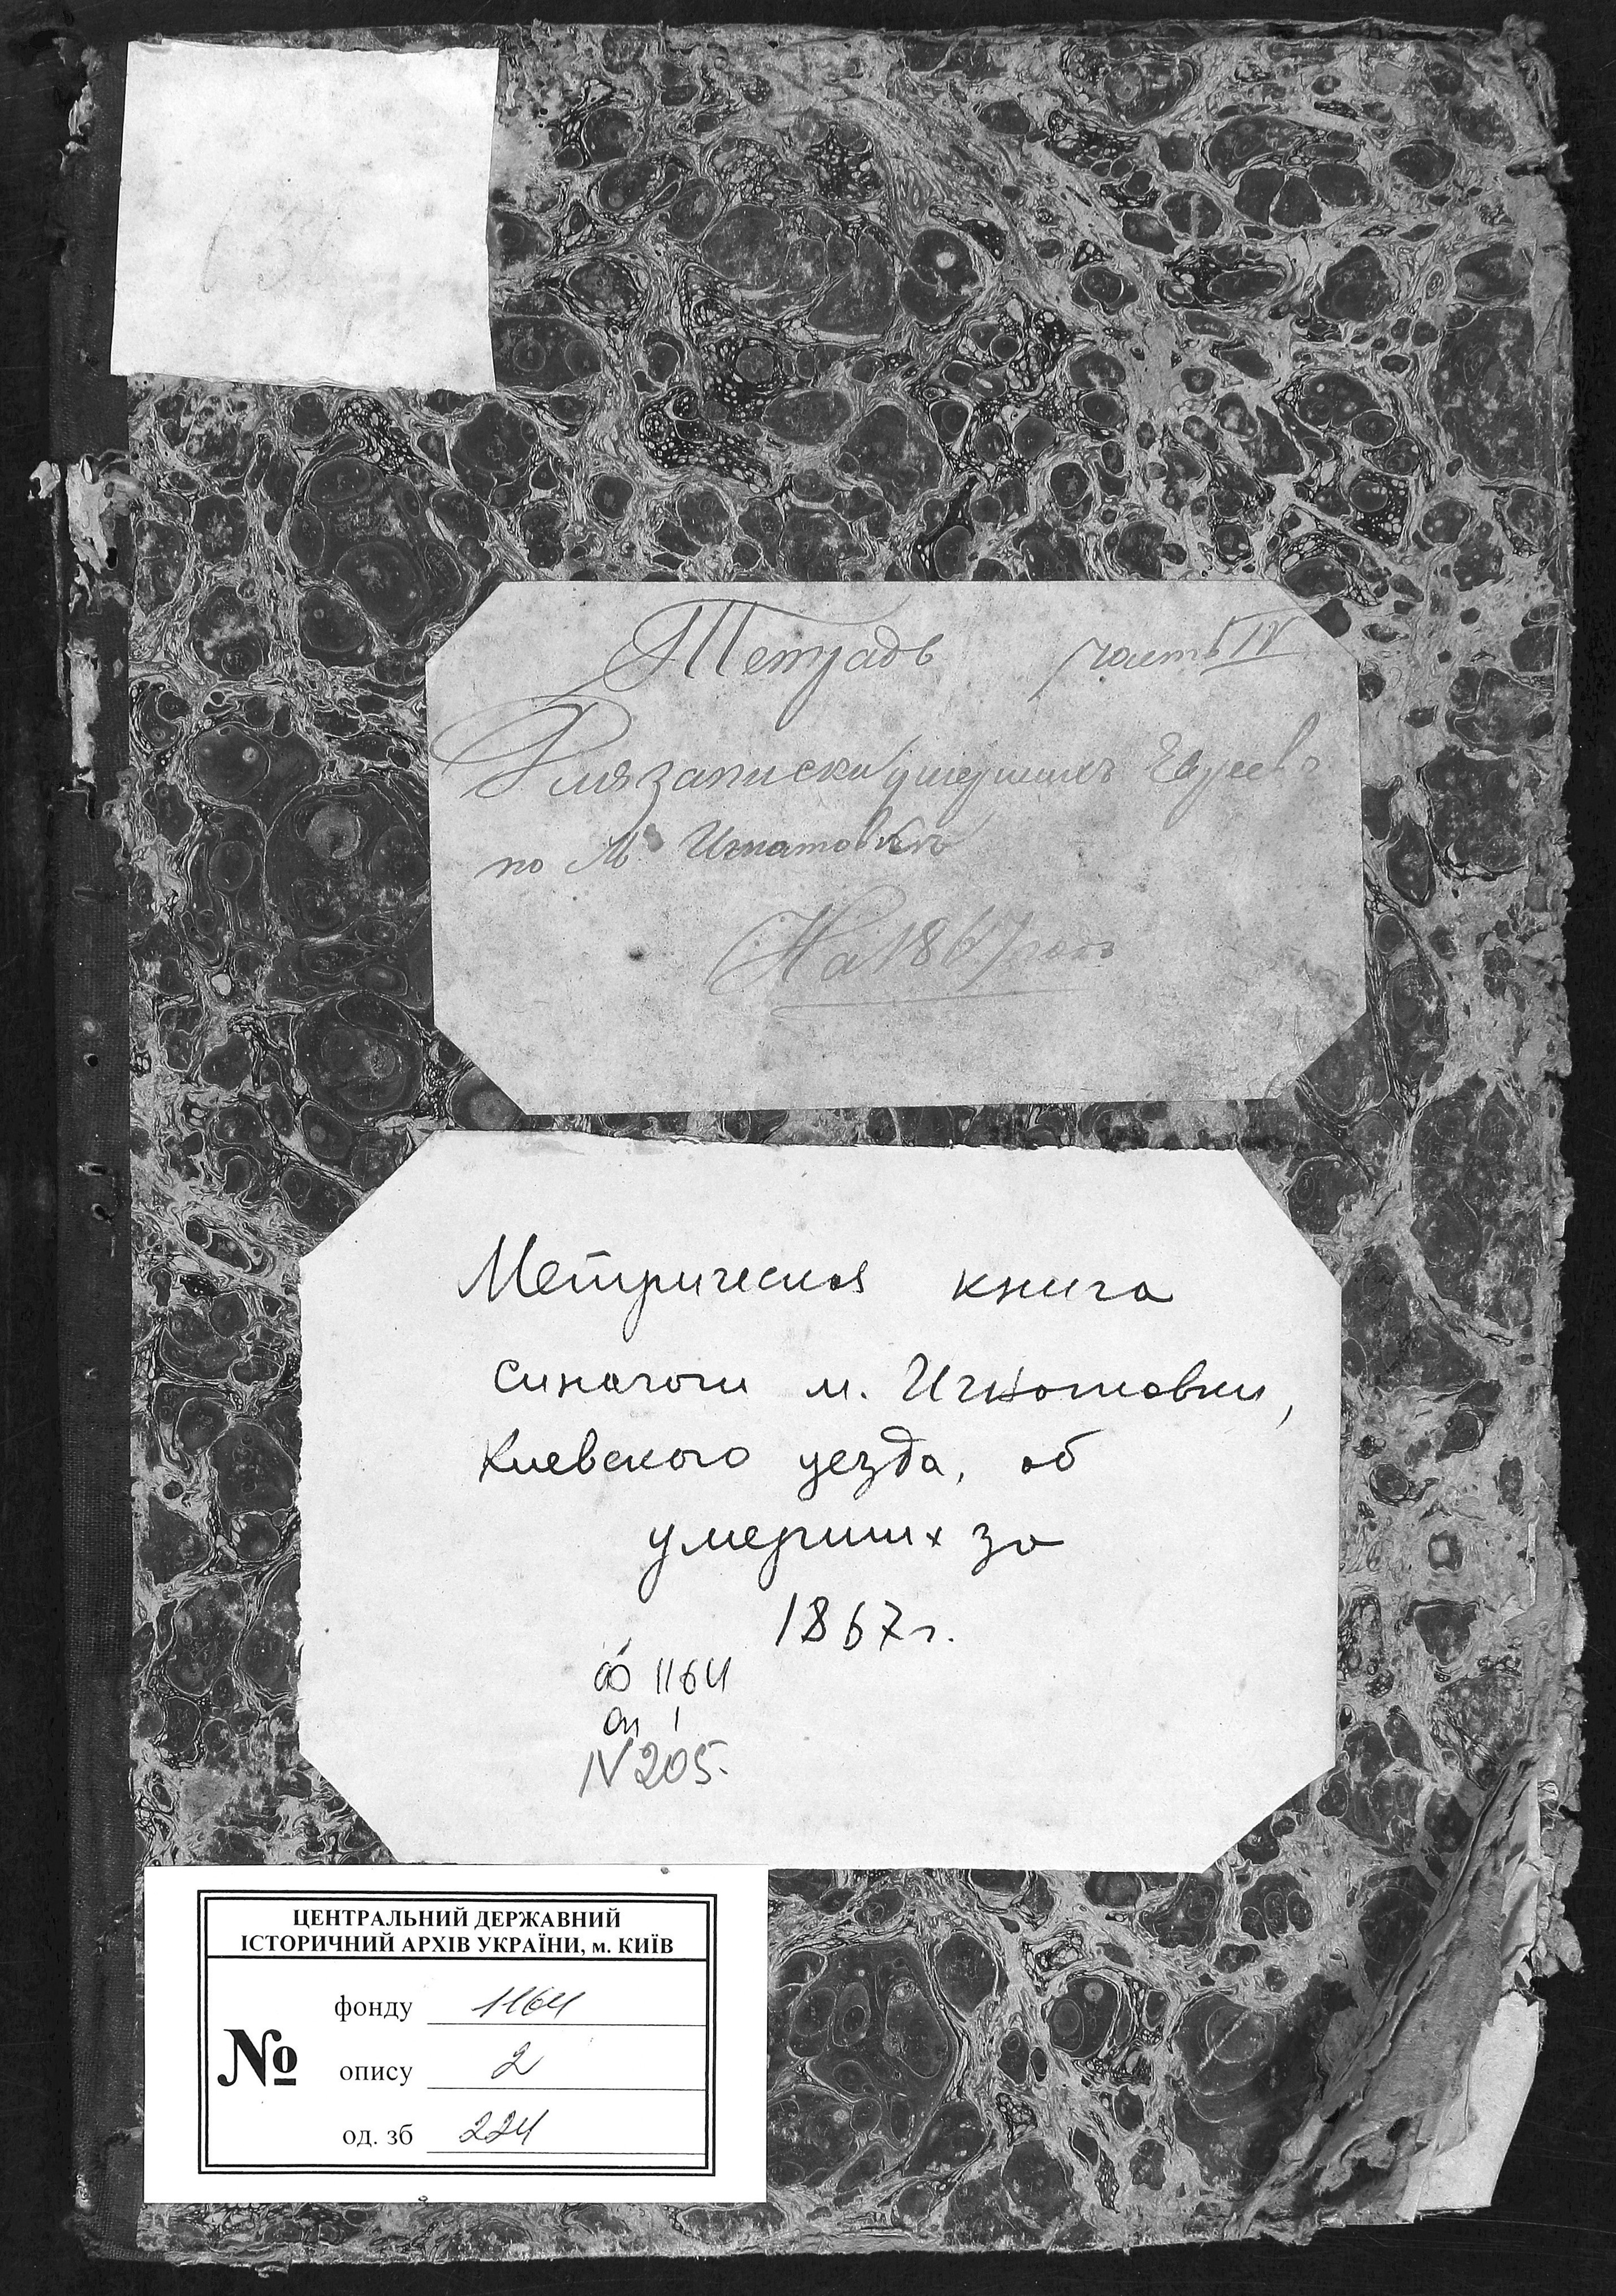 Тетрадь часть IV
Для записки умершихъ Евреевъ
по м Игнатовкъ
На 1867 годъ
Метрическая книга
синагоги м. Игнатовки,
Киевского уезда, об
умерших за
1867 г.
ф 1164
оп 1
N 205.
ЦЕНТРАЛЬНИЙ ДЕРЖАВНИЙ
ІСТОРИЧНИЙ АРХІВ УКРАЇНИ, м. КИЇВ
№
фонду 1164
опису 2
од. зб 224